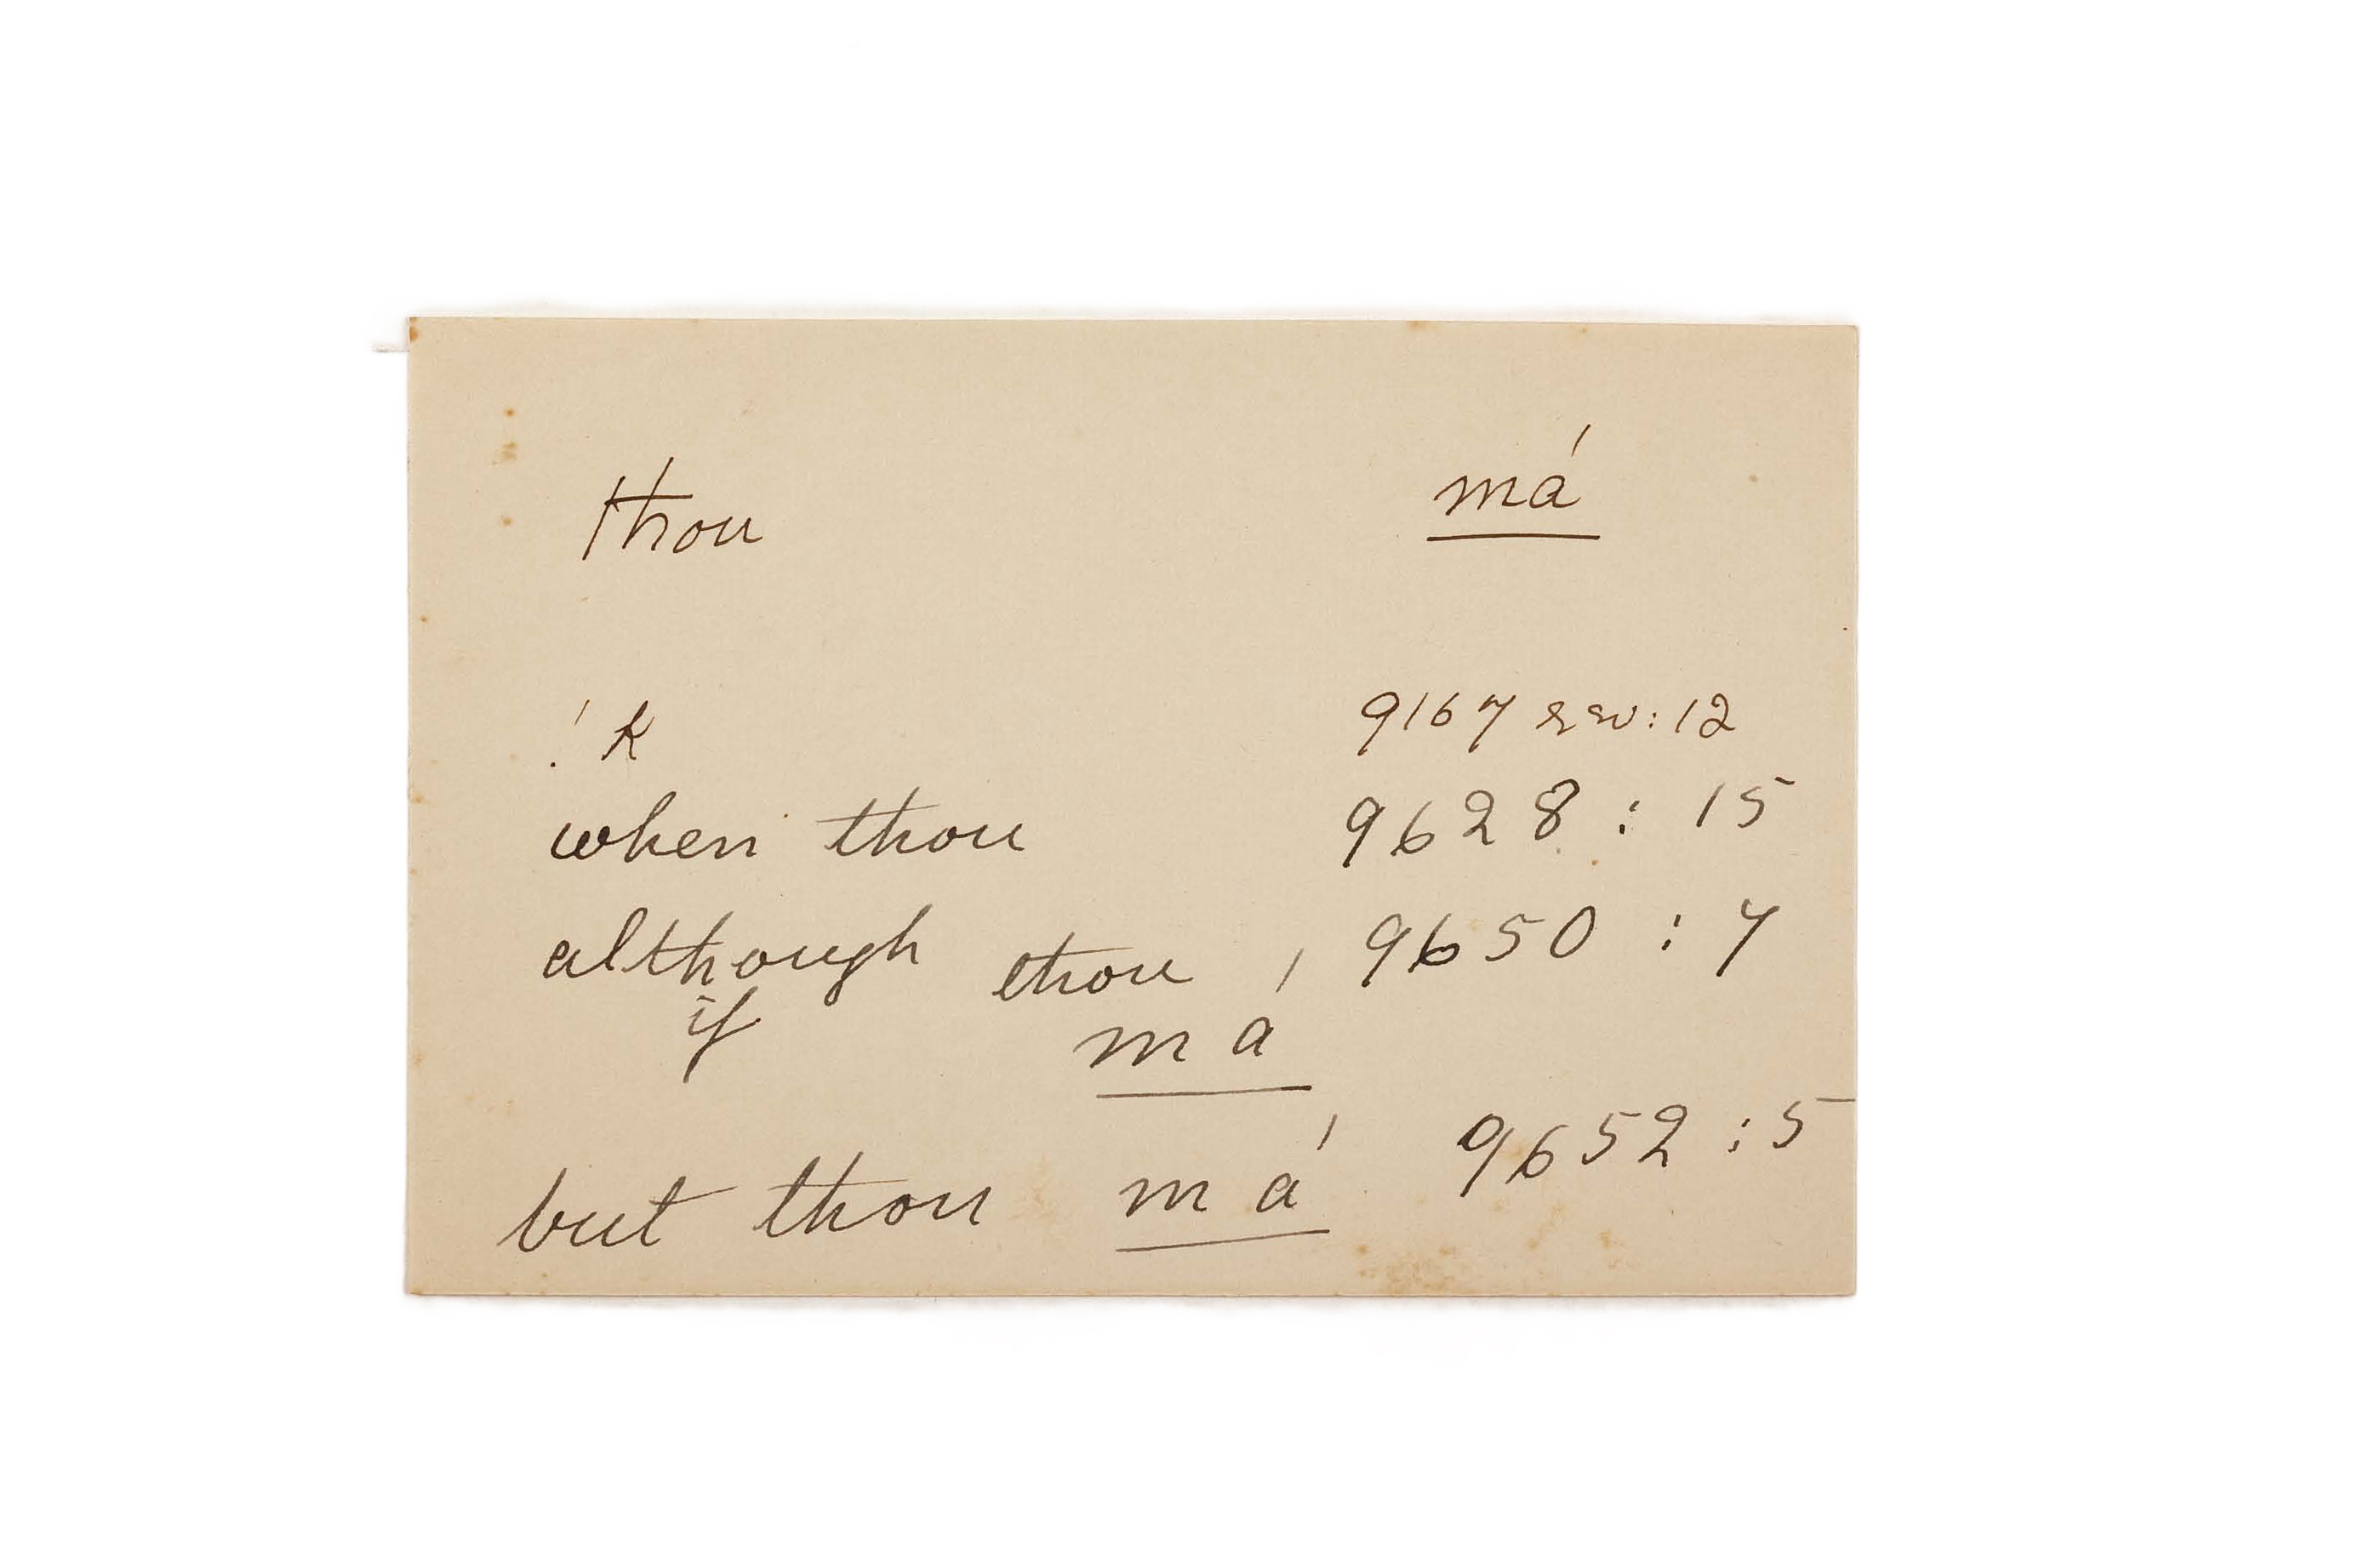 thou má
! k 9167 rev: 12
when thou 9628 : 15
although thou 9650 : 7
if má
but thou má 9652 : 5